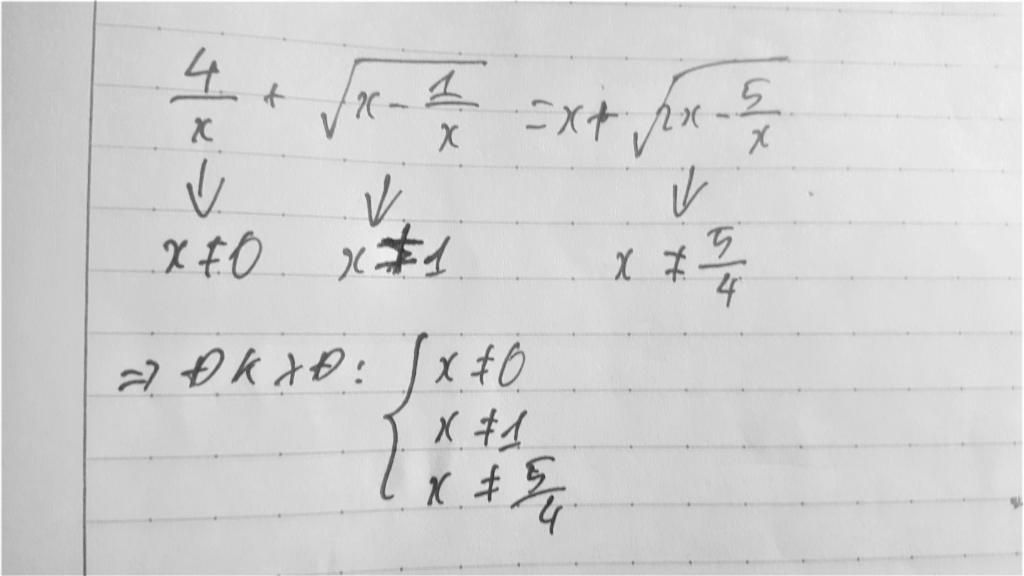 4/x + √(x - 1/x) = x + √(2x - 5/x)
↓ ↓ ↓
x ≠ 0 x ≠ 1 x ≠ 5/4
=> ĐKXĐ: { x ≠ 0
x ≠ 1
x ≠ 5/4